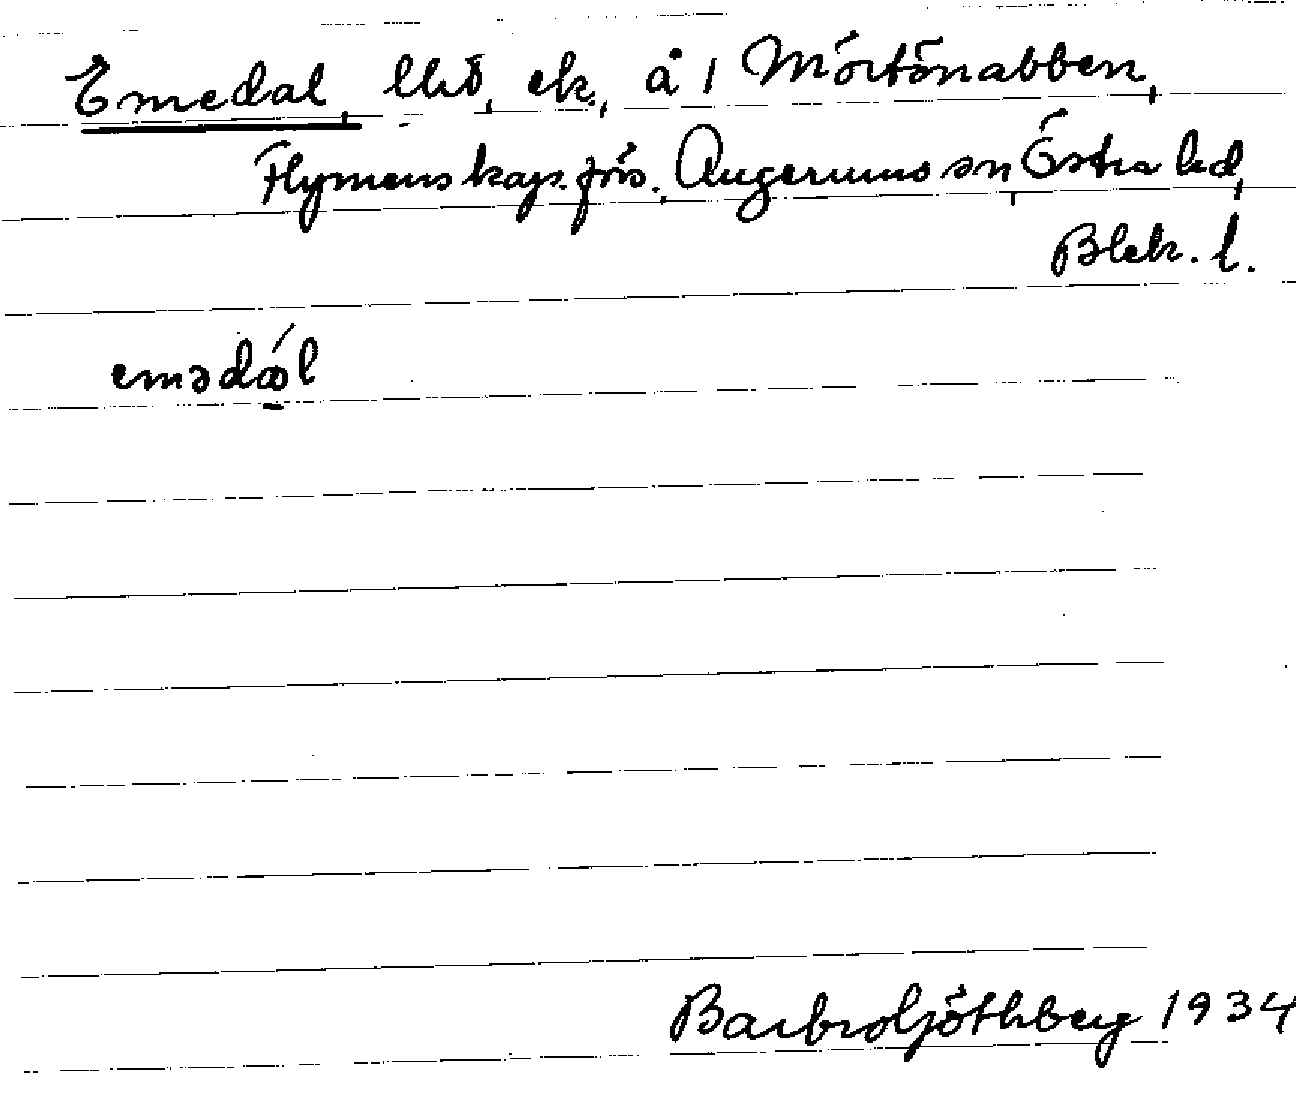 Emedal, lht, ek., å 1 Mörtönabben,
Flymens kap. förs. Augerums sn, Östra hd,
Blek. l.
emədál
Barbro Göthberg 1934